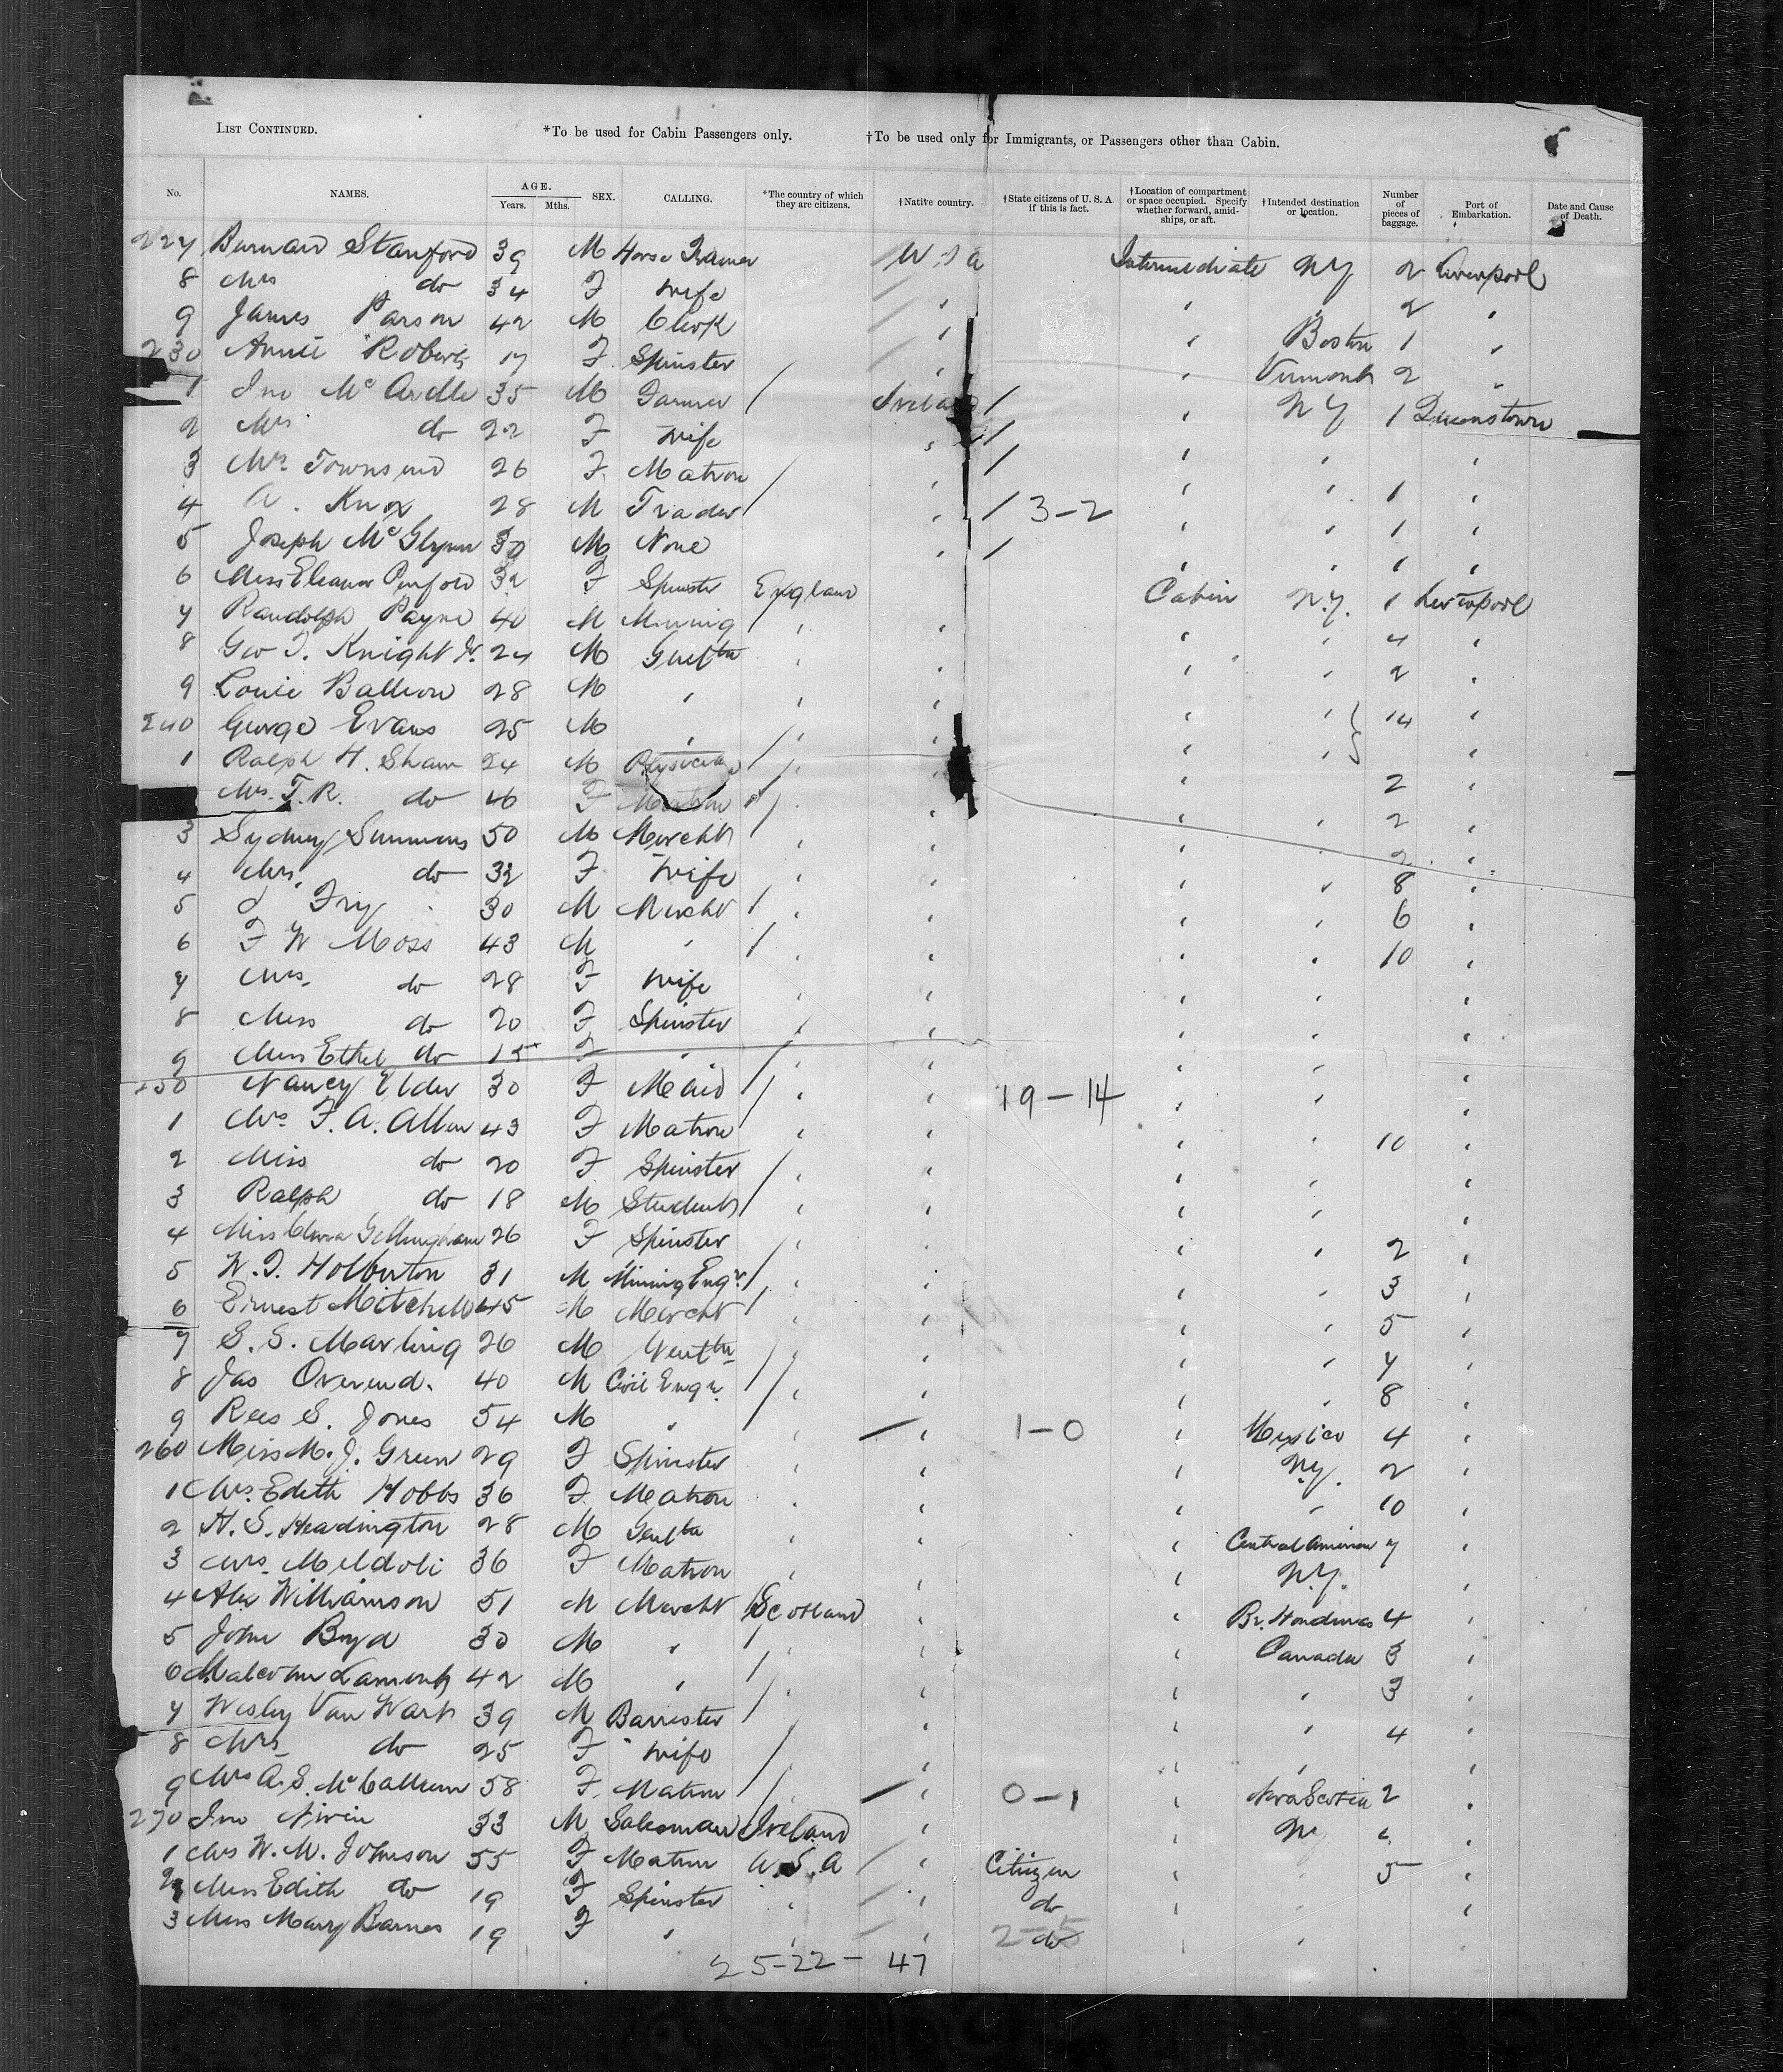 LIST CONTINUED. *To be used for Cabin Passengers only. †To be used only for Immigrants, or Passengers other than Cabin.
No. NAMES. AGE. Years. Mths. SEX. CALLING. *The country of which they are citizens. †Native country. †State citizens of U. S. A. if this is fact. †Location of compartment or space occupied. Specify whether forward, amidships, or aft. †Intended destination or location. Number of pieces of baggage. Port of Embarkation. Date and Cause of Death.
227 Stanford 39 M Horse Trainer U.S.A Intermediate NY 2 Liverpool
8 Mrs do 34 F Wife " " 2 "
9 James Parson 42 M Clerk " " Boston 1 "
230 Annie Roberts 17 F Spinster " " Vermont 2 "
1 Jno McArdle 35 M Farmer / Ireland / " NY 1 Queenstown
2 Mrs do 22 F Wife " / " " "
3 Mrs Townsend 26 F Matron / " / " " 1 "
4 A. Knox 28 M Trader / " / 3-2 " " 1 "
5 Joseph McGlynn 30 M None " / " " 1 "
6 Miss Eleanor Penfold 32 F Spinster England Cabin N.Y. 1 Liverpool
7 Randolph Payne 40 M Mining " " " " 4 "
8 Geo T. Knight Jr. 24 M " " " " 2 "
9 Louie 28 M " " " " " 14 "
240 George Evans 25 M " / " " " " "
1 Ralph H. Shaw 24 M Physician / " " " 2 "
Mrs. T.R. do 46 F Matron / " " " " 2 "
3 Sydney Simmons 50 M Mercht " " " " 2 "
4 Mrs. do 32 F Wife " " " " 8 "
5 Fry 30 M Mercht / " " " " 6 "
6 F W Moss 43 M " / " " " " 10 "
7 Mrs. do 28 F Wife " " " " "
8 Miss do 20 F Spinster " " " " "
9 Miss Ethel do 15 F " / " " " " "
250 Nancy Elder 30 F Maid / " " 19-14 " " "
1 Mrs. F.A. Allen 43 F Matron " " " " 10 "
2 Miss do 20 F Spinster / " " " "
3 Ralph do 18 M Student / " " " " "
4 Miss Clara Gellingham 26 F Spinster / " " " " 2 "
5 W.T. Holberton 31 M Mining Engr. / " " " " 3 "
6 Ernest Mitchell 45 M Mercht / " " " " 5 "
7 S.S. Marling 26 M Gentln / " " " " 7 "
8 Jas Overend. 40 M Civil Engr. / " " " " 8 "
9 Rees S. Jones 54 M " " / " 1-0 " Mexico 4 "
260 Miss M. J. Green 29 F Spinster " " " N.Y. 2 "
1 Mrs. Edith Hobbs 36 F Matron " " " " 10 "
2 H.S. Headington 28 M " " " Central America 7 "
3 Mrs. Meldoli 36 F Matron " " " N.Y. "
4 Alex Williamson 51 M Mercht / Scotland " " Br. Honduras 4 "
5 John Boyd 30 M " / " " " Canada 3 "
6 Malcolm Lamont 42 M " / " " " " 3 "
7 Wesley Van Wart 39 M Barrister / " " " " 4 "
8 Mrs do 25 F Wife / " " " "
9 Mrs A.S. McCallum 58 F Matron / " / " 0-1 " Nova Scotia 2 "
270 Jno Nivin 33 M Salesman Ireland " " NY " "
1 Mrs W. M. Johnson 55 F Matron U.S.A / " Citizen " " 5 "
2 Miss Edith do 19 F Spinster " / " do " " "
3 Miss Mary Barnes 19 F " " / " do 2-5 " "
25-22-47